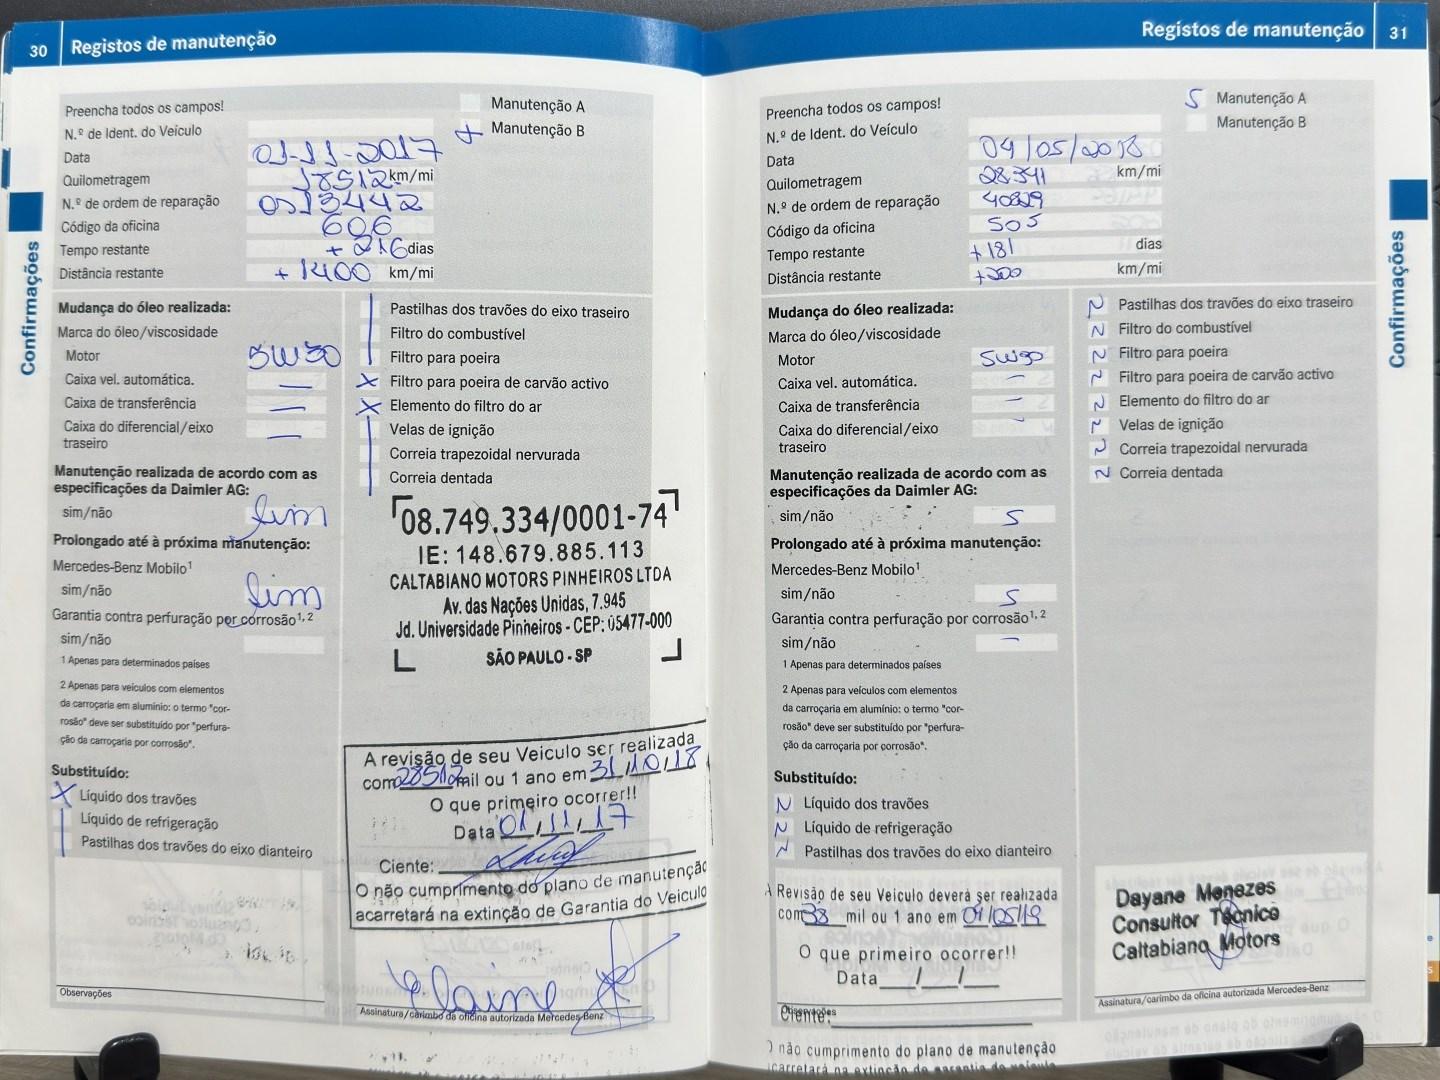 30 Registos de manutenção
Preencha todos os campos!
Manutenção A
N.º de Ident. do Veículo
+ Manutenção B
Data 01-11-2017
Quilometragem 18512 km/mi
N.º de ordem de reparação 0313442
Código da oficina 606
Tempo restante + 216 dias
Distância restante + 1400 km/mi
Confirmações
Mudança do óleo realizada:
Marca do óleo/viscosidade
Motor 5W30
Caixa vel. automática. —
Caixa de transferência —
Caixa do diferencial/eixo —
traseiro
Manutenção realizada de acordo com as
especificações da Daimler AG:
sim/não Sim
Prolongado até à próxima manutenção:
Mercedes-Benz Mobilo¹
sim/não Sim
Garantia contra perfuração por corrosão¹, ²
sim/não
1 Apenas para determinados países
2 Apenas para veículos com elementos
da carroçaria em alumínio: o termo "cor-
rosão" deve ser substituído por "perfura-
ção da carroçaria por corrosão".
Substituído:
X Líquido dos travões
Líquido de refrigeração
Pastilhas dos travões do eixo dianteiro
Observações
Pastilhas dos travões do eixo traseiro
Filtro do combustível
Filtro para poeira
X Filtro para poeira de carvão activo
X Elemento do filtro do ar
Velas de ignição
Correia trapezoidal nervurada
Correia dentada
08.749.334/0001-74
IE: 148.679.885.113
CALTABIANO MOTORS PINHEIROS LTDA
Av. das Nações Unidas, 7.945
Jd. Universidade Pinheiros - CEP: 05477-000
SÃO PAULO - SP
A revisão de seu Veiculo ser realizada
com 28512 mil ou 1 ano em 31/10/18
O que primeiro ocorrer!!
Data 01/11/17
Ciente:
O não cumprimento do plano de manutenção
acarretará na extinção de Garantia do Veiculo
Elaine
Assinatura/carimbo da oficina autorizada Mercedes-Benz
Registos de manutenção 31
Preencha todos os campos!
S Manutenção A
N.º de Ident. do Veículo
Manutenção B
Data 04/05/2018
Quilometragem 28341 km/mi
N.º de ordem de reparação 40829
Código da oficina 505
Tempo restante +181 dias
Distância restante +200 km/mi
Confirmações
Mudança do óleo realizada:
Marca do óleo/viscosidade
Motor 5W30
Caixa vel. automática. —
Caixa de transferência —
Caixa do diferencial/eixo —
traseiro
Manutenção realizada de acordo com as
especificações da Daimler AG:
sim/não S
Prolongado até à próxima manutenção:
Mercedes-Benz Mobilo¹
sim/não S
Garantia contra perfuração por corrosão¹, ²
sim/não —
1 Apenas para determinados países
2 Apenas para veículos com elementos
da carroçaria em alumínio: o termo "cor-
rosão" deve ser substituído por "perfura-
ção da carroçaria por corrosão".
Substituído:
N Líquido dos travões
N Líquido de refrigeração
N Pastilhas dos travões do eixo dianteiro
A Revisão de seu Veiculo deverá ser realizada
com 38 mil ou 1 ano em 04/05/19
O que primeiro ocorrer!!
Data __/__/__
Observações
Ciente:
O não cumprimento do plano de manutenção
acarretará na extinção de garantia do veiculo
N Pastilhas dos travões do eixo traseiro
N Filtro do combustível
N Filtro para poeira
N Filtro para poeira de carvão activo
N Elemento do filtro do ar
N Velas de ignição
N Correia trapezoidal nervurada
N Correia dentada
Dayane Menezes
Consultor Técnico
Caltabiano Motors
Assinatura/carimbo da oficina autorizada Mercedes-Benz